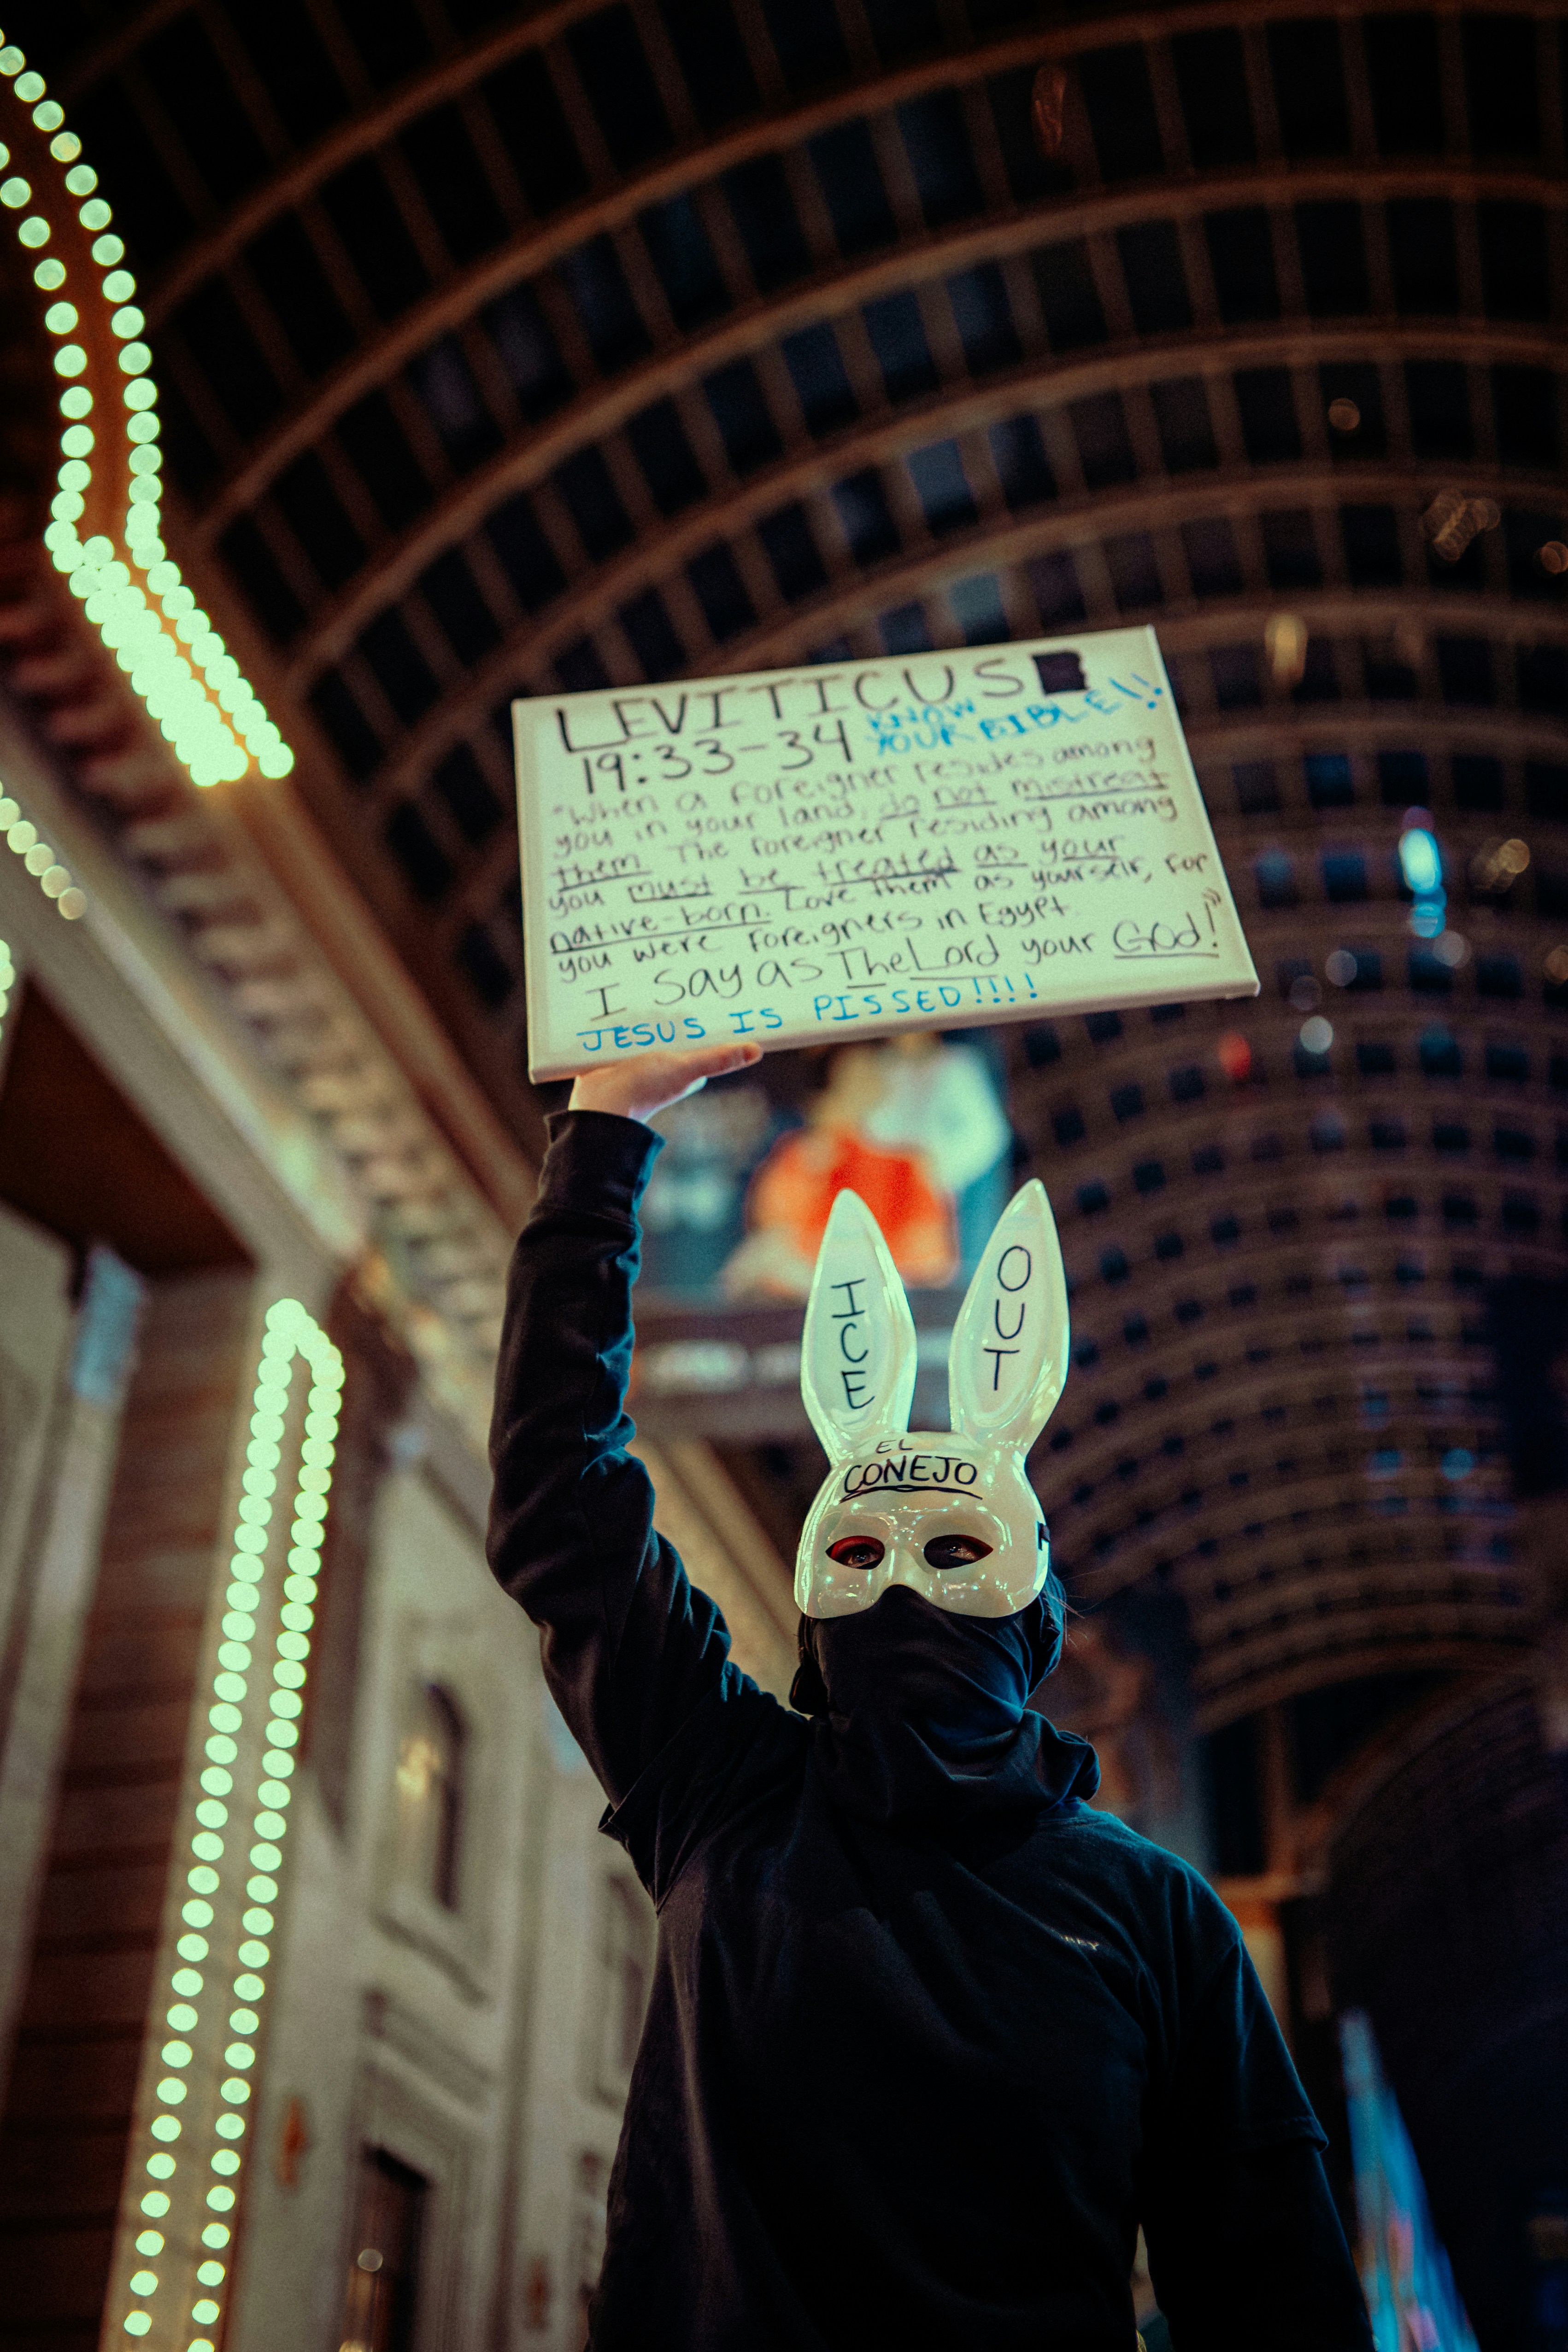 LEVITICUS
19:33-34
KNOW
YOUR BIBLE!!
"When a foreigner resides among
you in your land, do not mistreat
them. The foreigner residing among
you must be treated as your
native-born. Love them as yourself, for
you were foreigners in Egypt.
I say as The Lord your God!"
JESUS IS PISSED!!!!
ICE
OUT
EL
CONEJO